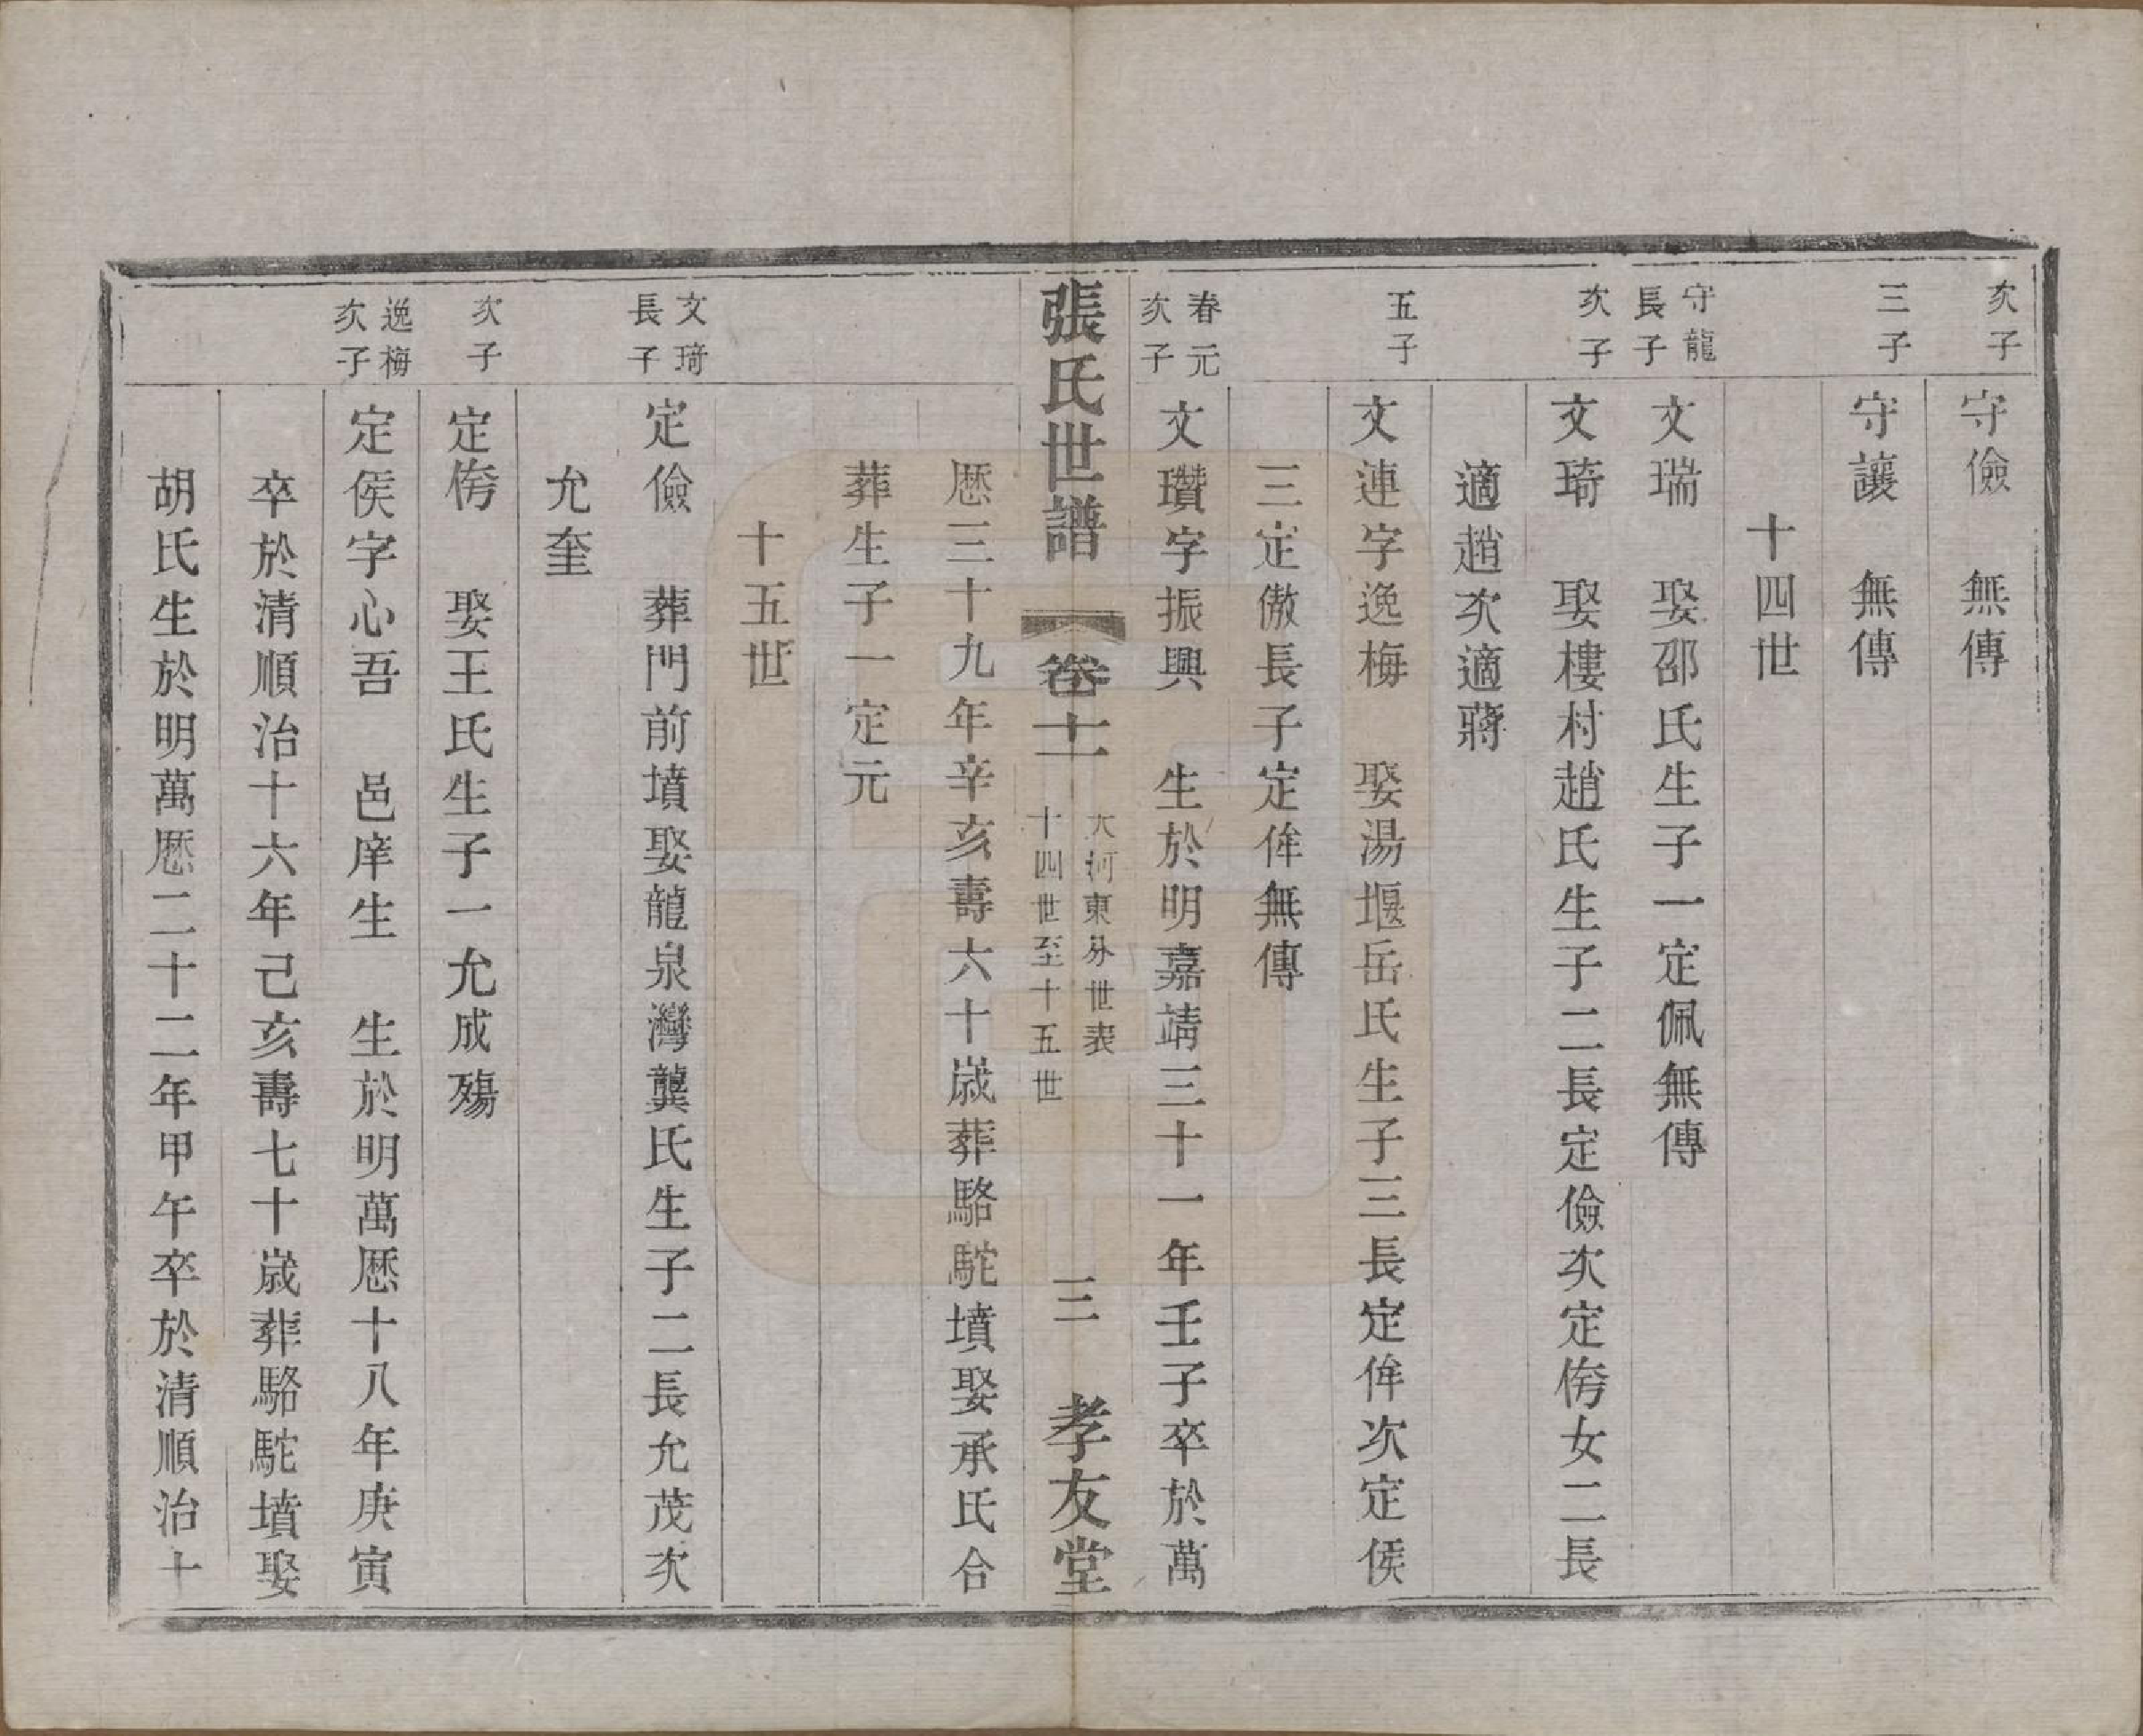 次子
守儉　無傳
三子
守讓　無傳
十四世
守龍長子
文瑞　娶邵氏生子一定佩無傳
次子
文琦　娶樓村趙氏生子二長定儉次定侉女二長
適趙次適蔣
五子
文連字逸梅　娶湯堰岳氏生子三長定侔次定俟
三定傲長子定侔無傳
春元次子
文瓚字振興　生於明嘉靖三十一年壬子卒於萬
張氏世譜　卷十一　大河東分世表　十四世至十五世　三　孝友堂
歷三十九年辛亥壽六十歲葬駱駝墳娶承氏合
葬生子一定元
十五世
文琦長子
定儉　葬門前墳娶龍泉灣龔氏生子二長允茂次
允奎
次子
定侉　娶王氏生子一允成殤
逸梅次子
定俟字心吾　邑庠生　生於明萬歷十八年庚寅
卒於清順治十六年己亥壽七十歲葬駱駝墳娶
胡氏生於明萬歷二十二年甲午卒於清順治十